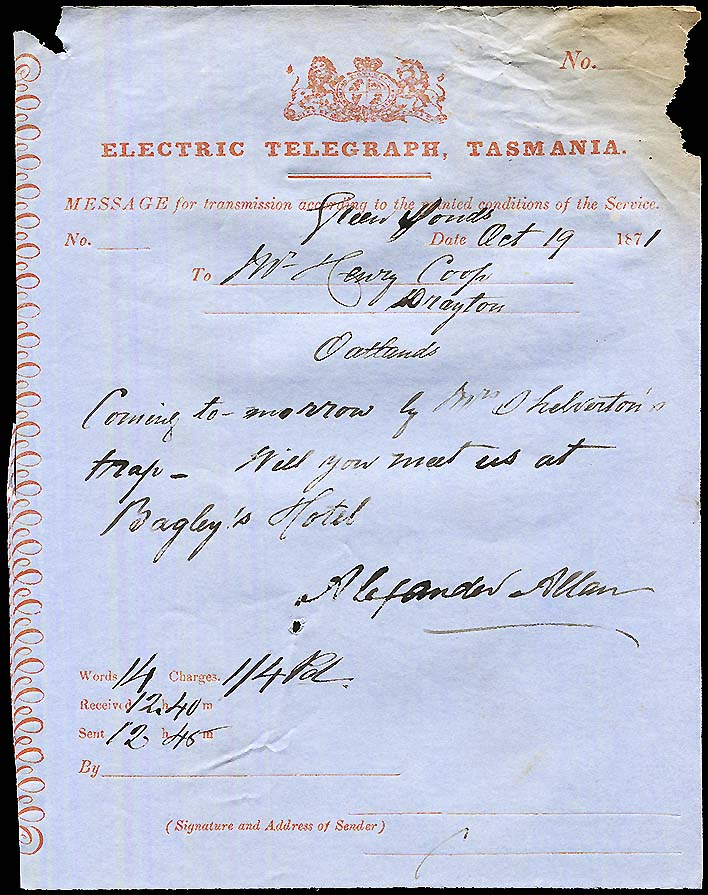 No.
ELECTRIC TELEGRAPH, TASMANIA.
MESSAGE for transmission according to the printed conditions of the Service.
Green Ponds
No. Date Oct 19 1871
To Mr Henry Coop
Drayton
Oatlands
Coming to-morrow by Mrs Shelverton's
trap - Will you meet us at
Bagley's Hotel
Alexander Allan
Words 14 Charges. 1/4 Pd.
Received 12 h 40 m
Sent 12 h 45 m
By
(Signature and Address of Sender)